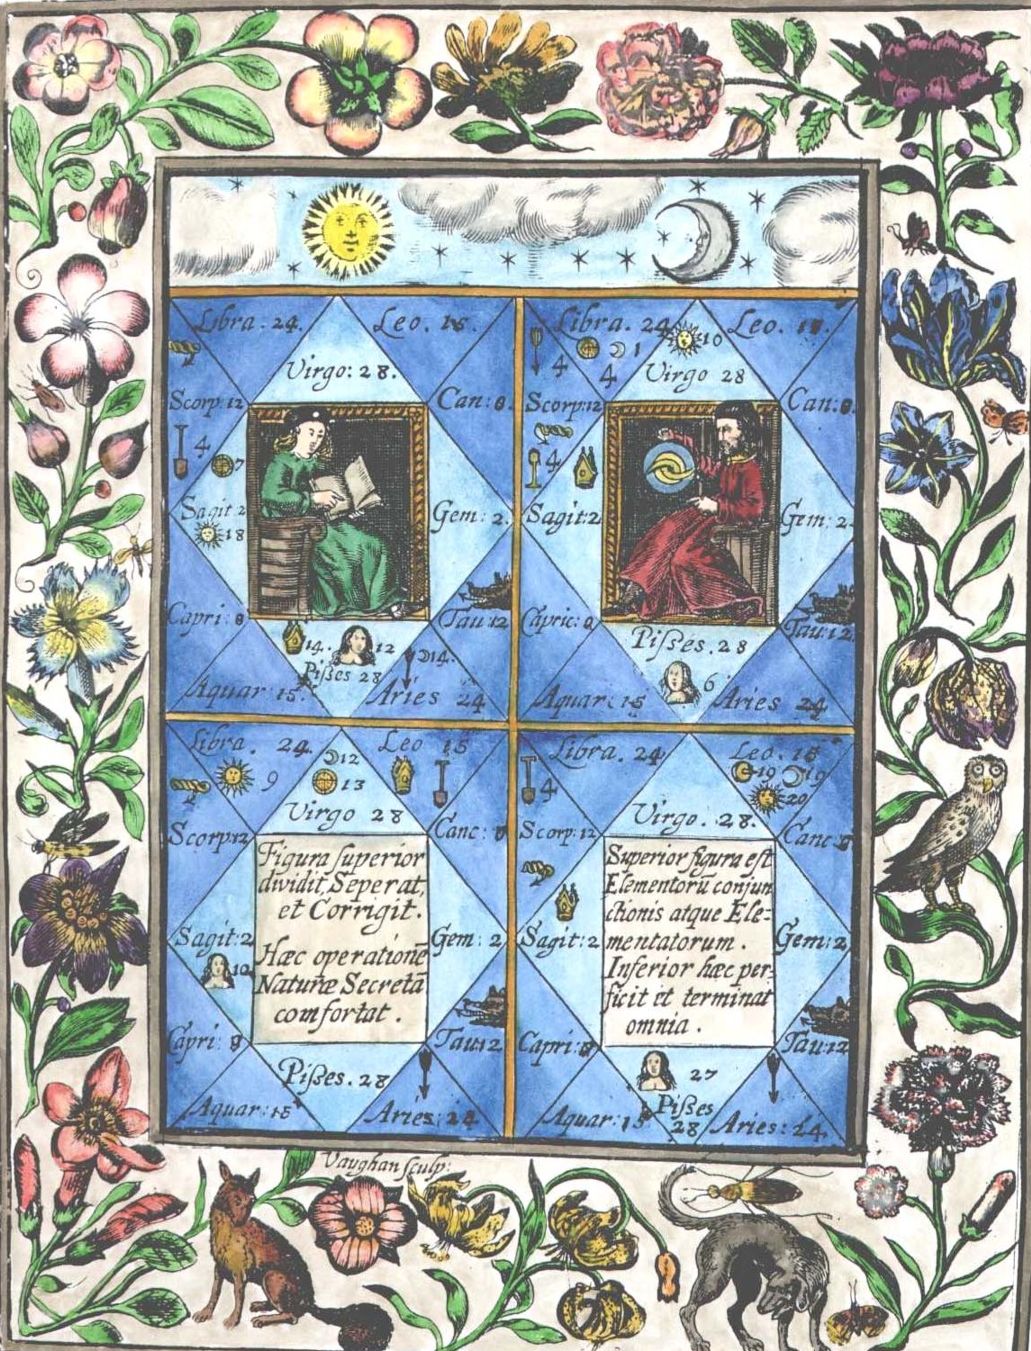 Libra . 24.
Leo . 15.
Virgo : 28.
Scorp: 12
Can: 0.
4
7
Sagit 2
18
Gem: 2.
Capri: 0
Tau: 12
14.
12
Pißes 28
14.
Aquar: 15.
Aries 24
Libra . 24
10
Leo . 15.
4
1
4
Virgo 28
Scorp: 12
Can: 0.
4
Sagit: 2
Gem: 2.
Capric: 0
Tau: 12
Pißes . 28
6
Aquar: 15
Aries 24
Libra . 24.
12
Leo 15
9
13
Virgo 28
Scorp: 12
Canc: 0
Figura ſuperior
dividit, Seperat,
et Corrigit .
Hæc operationē
Naturæ Secretā
comfortat .
Sagit: 2
10
Gem: 2
Capri: 0
Tau: 12
Pißes . 28
Aquar: 15
Aries: 24
Libra 24
Leo . 15
19
19
20
4
Virgo . 28.
Scorp: 12
Canc: 0
Superior figura eſt
Elementorū conjun
ctionis atque Ele=
mentatorum .
Inferior hæc per=
ficit et terminat
omnia .
Sagit: 2
Gem: 2
Capri: 0
Tau: 12
27
Pißes
28
Aquar: 15
Aries: 24.
Vaughan ſculp: